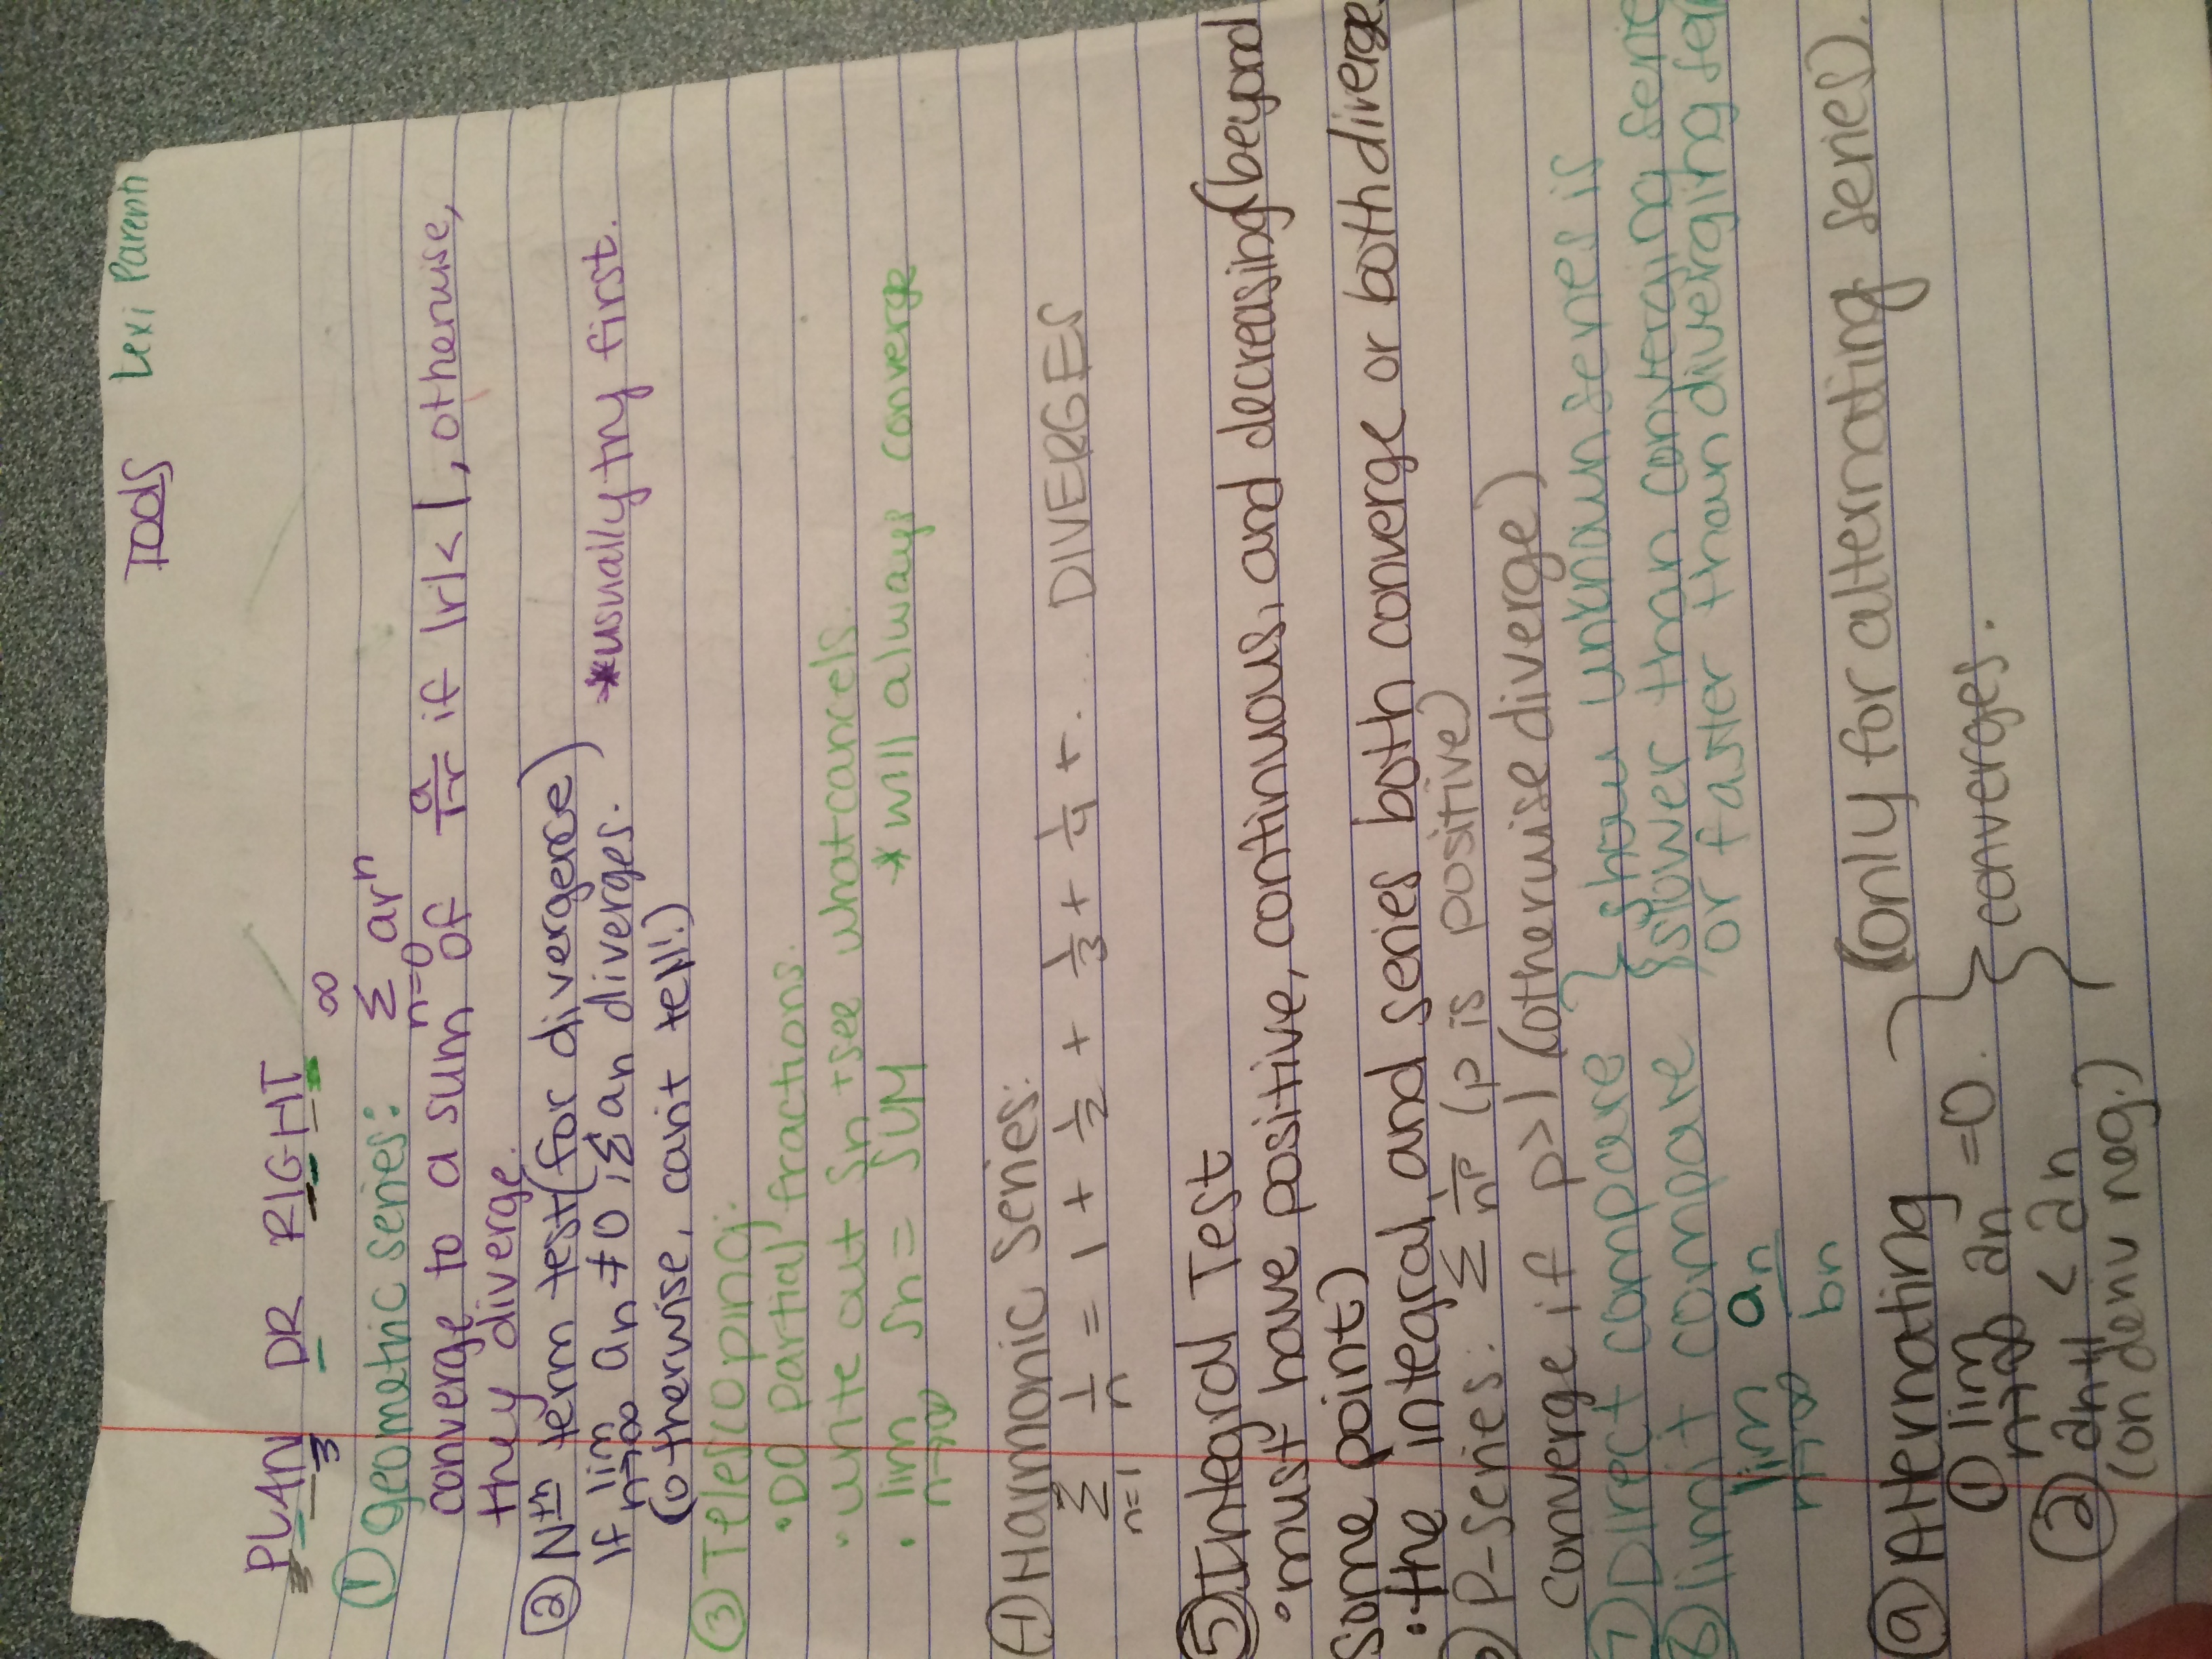 TOOLS Lexi Parenh
PLAN DR RIGHT
3 3
① geometric series: ∞ Σ n=0 arⁿ
converge to a sum of a/1-r if |r| < 1, otherwise,
they diverge.
② Nth term test (for divergence)
If lim n→∞ an ≠ 0, Σ an diverges. *usually try first.
(otherwise, can't tell!)
③ Telescoping:
• DO partial fractions.
• write out Sn + see what cancels.
• lim n→∞ Sn = SUM * will always converge
④ Harmonic Series:
Σ n=1 1/n = 1 + 1/2 + 1/3 + 1/4 + ... DIVERGES
⑤ Integral Test
• must have positive, continuous, and decreasing (beyond
some point)
• the integral, and series both converge or both diverge.
P-series: Σ 1/nᵖ (p is positive)
converge if p>1 (otherwise diverge)
⑦ Direct compare } show unknown series is
⑧ limit compare } slower than converging
lim n→∞ an/bn or faster than diverging
⑨ Alternating } (only for alternating series).
① lim n→∞ an = 0. } converges.
② an+1 < an
(on deriv neg.)